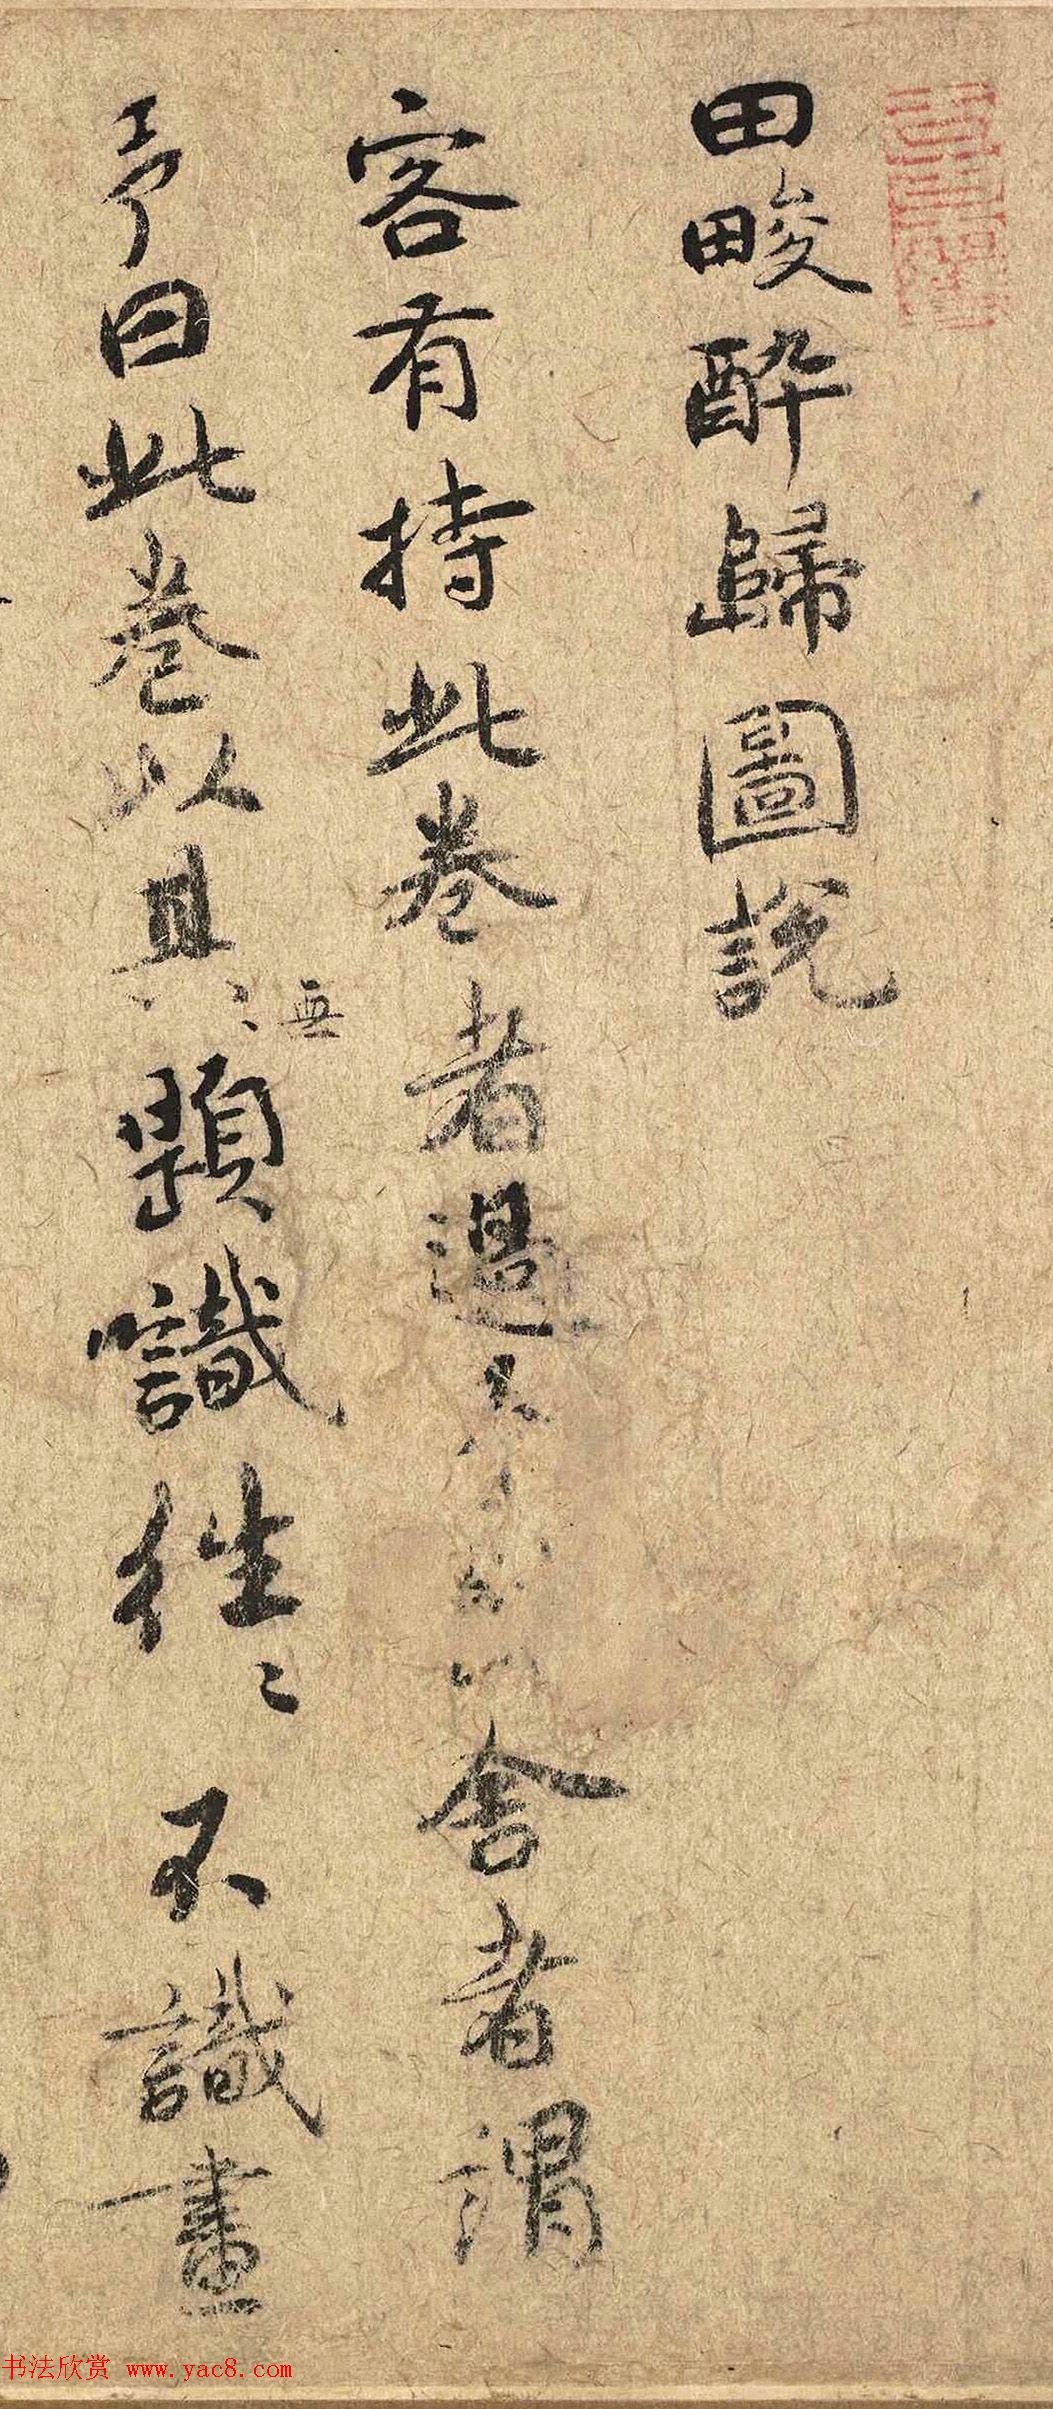 田畯醉歸圖說
客有持此卷者過舍者謂
予曰此卷以其無題識往〻不識畫
书法欣赏 www.yac8.com